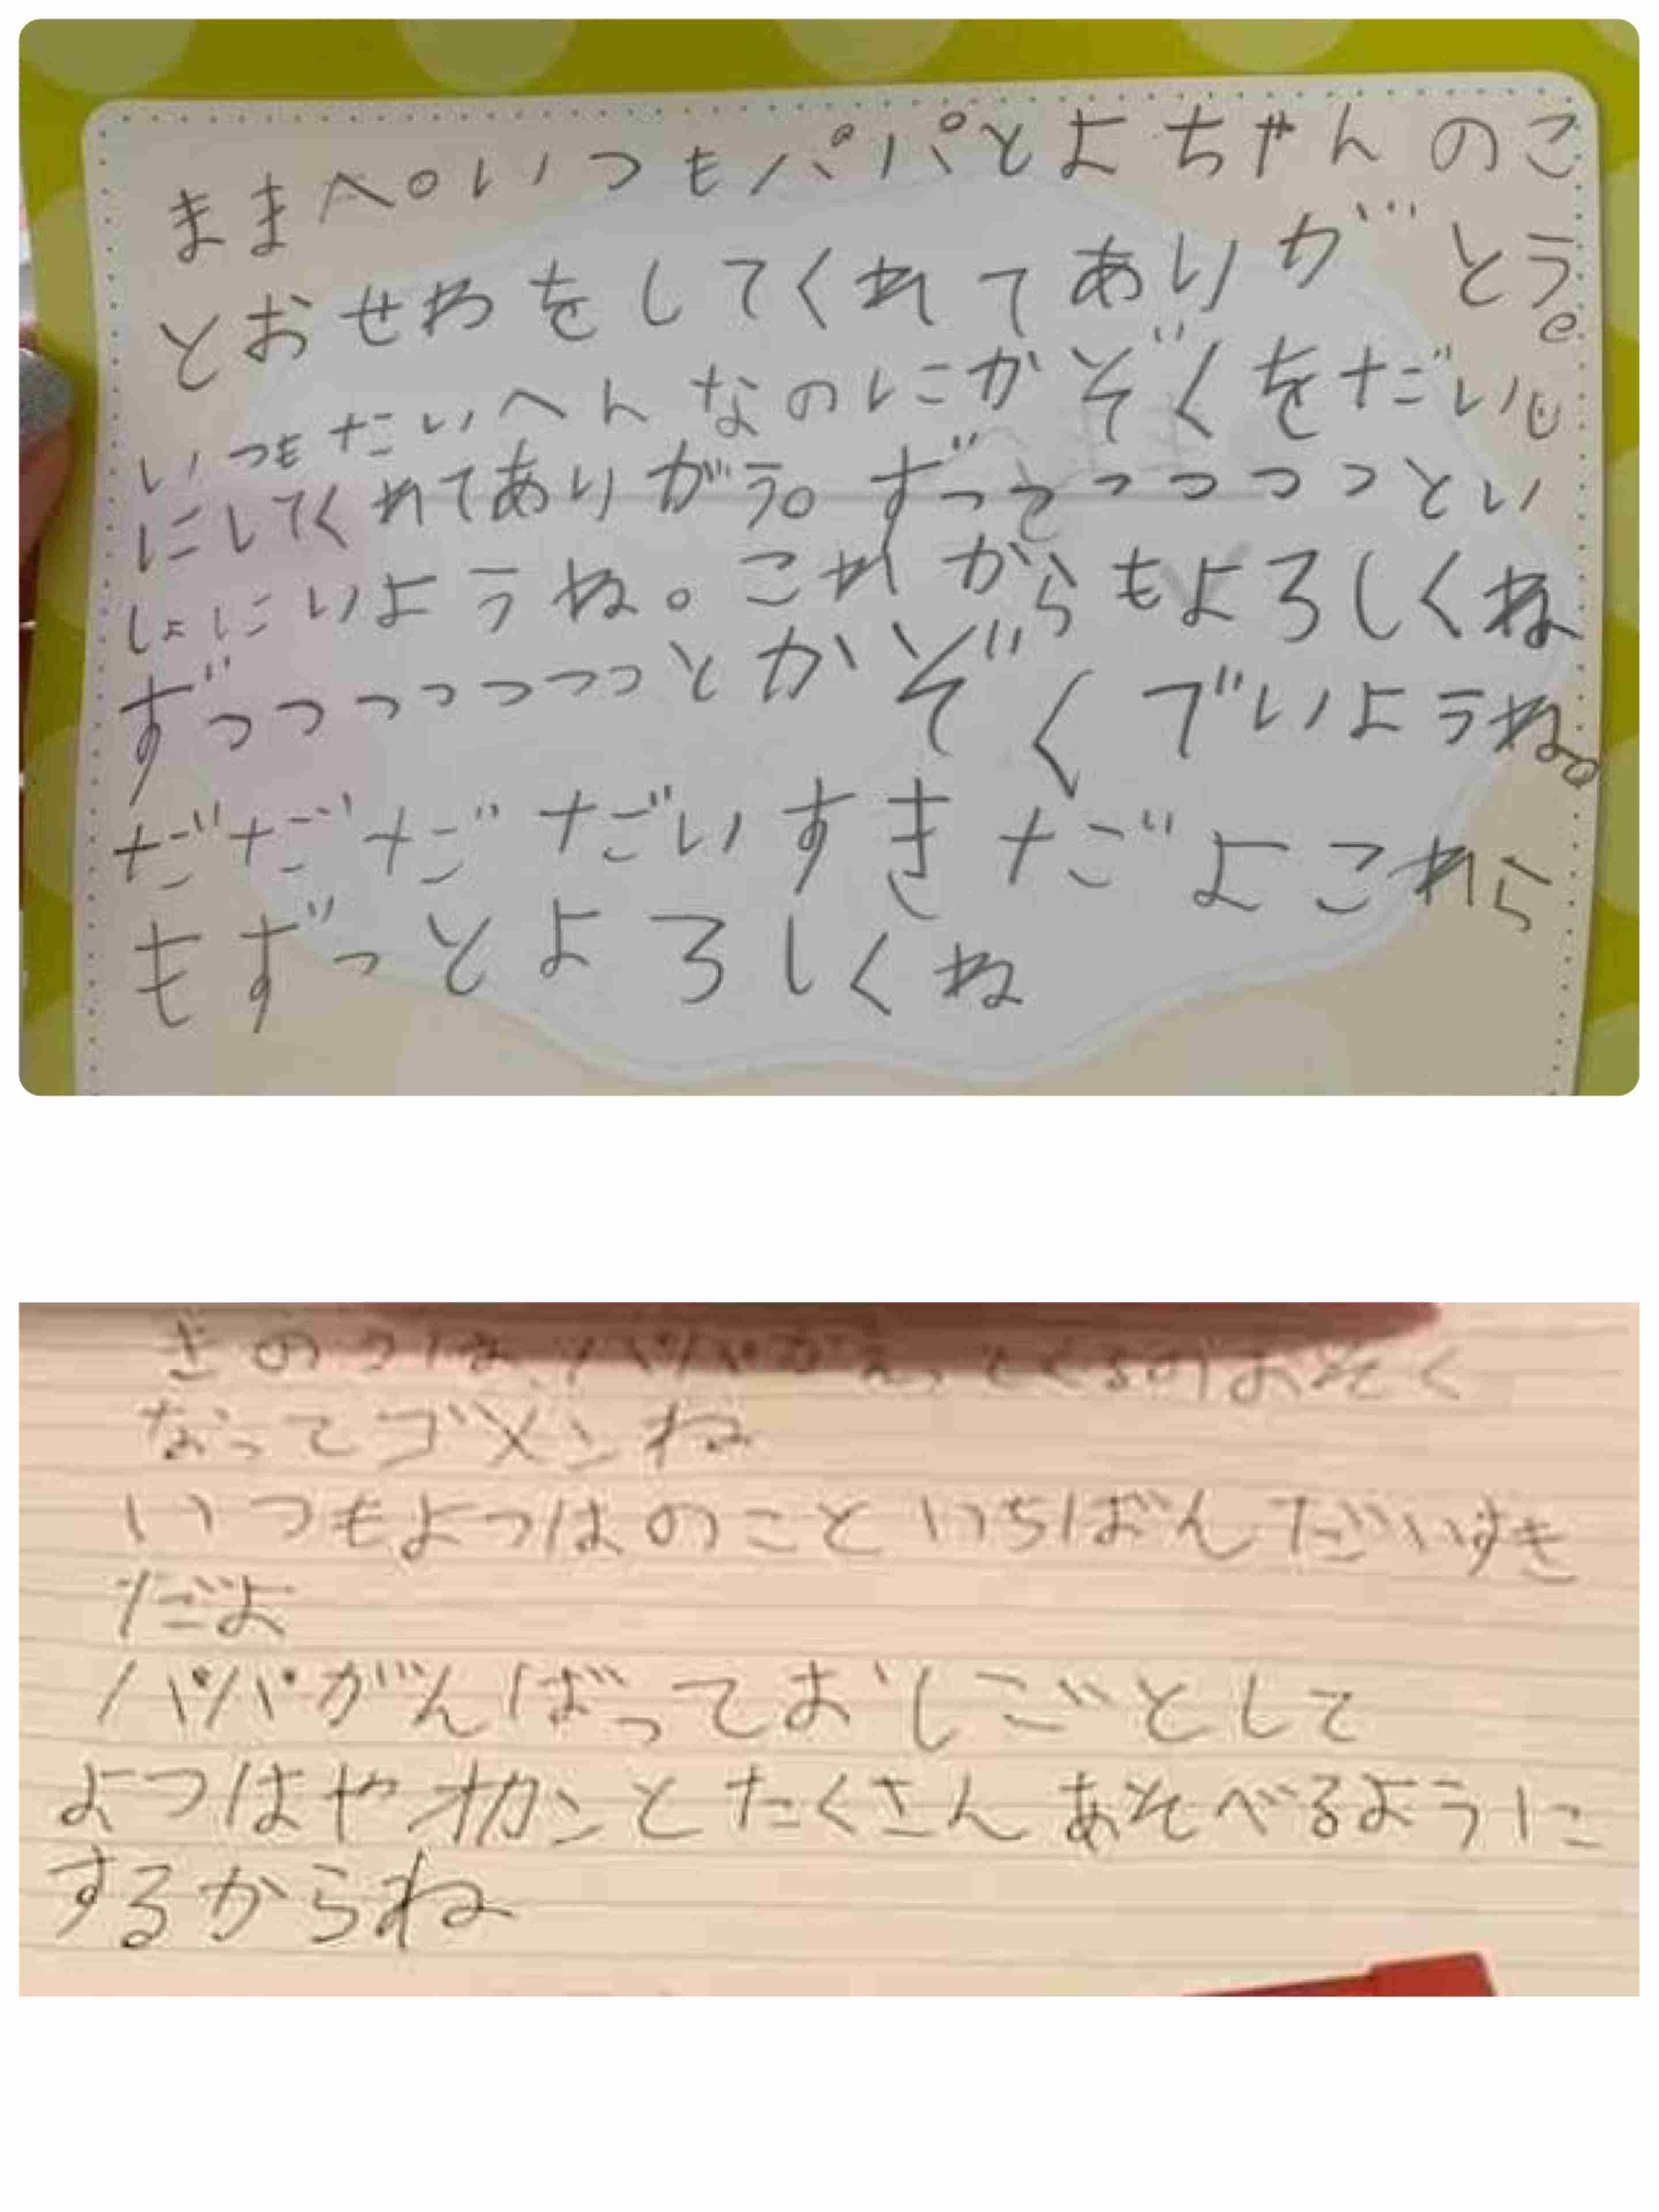 ままへ。いつもパパとよちゃんのこ
とおせわをしてくれてありがとう。
いつもたいへんなのにかぞくをだいじ
にしてくれてありがう。ずっとっっっっっとい
しょにいようね。これからもよろしくね
ずっっっっっっっとかぞくでいようね。
だだだだいすきだよこれら
もずっとよろしくね
きのうは、パパかえってくるのおそく
なってゴメンね
いつもよつはのこといちばんだいすき
だよ
パパがんばっておしごとして
よつはやオカンとたくさんあそべるように
するからね